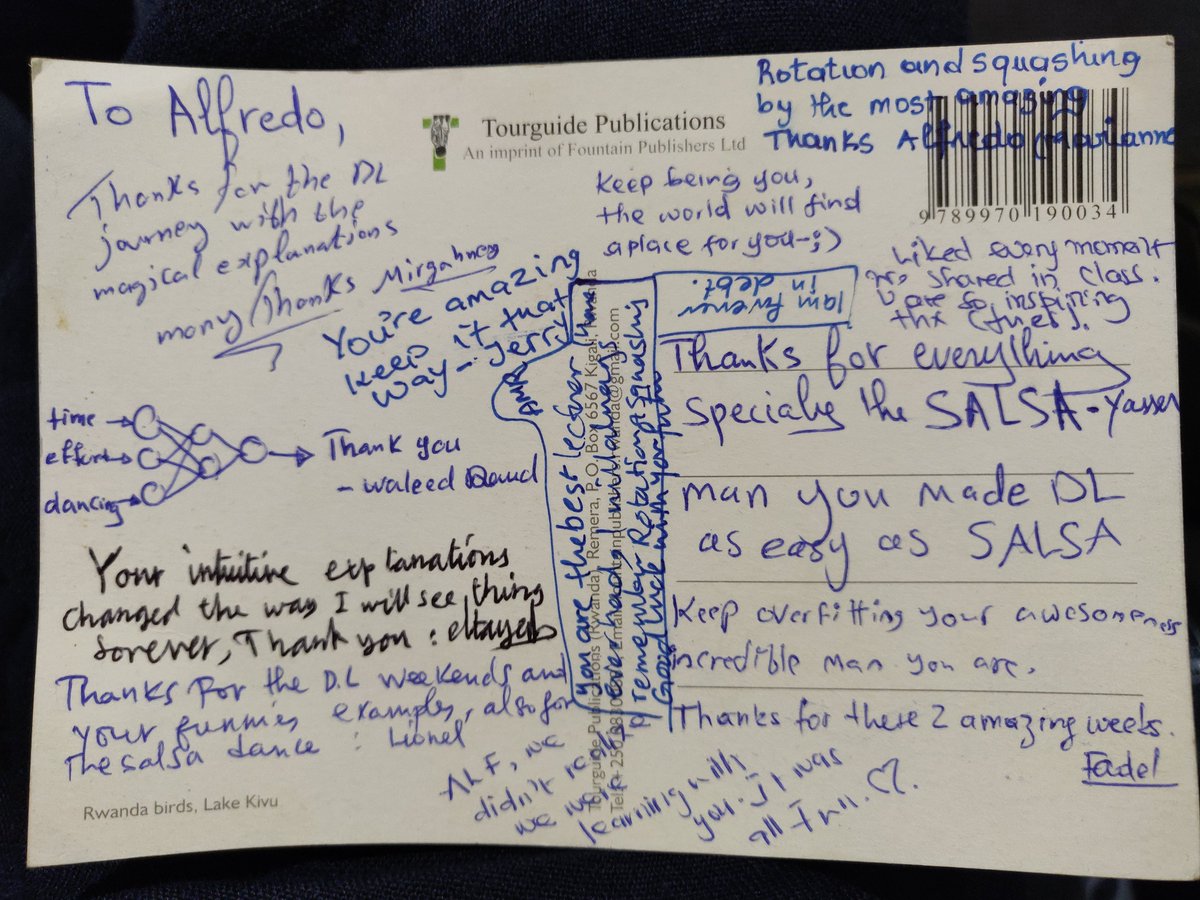 To Alfredo,
Thanks for the DL
journey with the
magical explanations
many Thanks Mirgahney
Tourguide Publications
An imprint of Fountain Publishers Ltd
Rotation and squashing
by the most amazing
Thanks Alfredo Marianne
9 789970 190034
Keep being you,
the world will find
a place for you-;)
Liked every moment
shared in class.
U are so inspiring
thx
You're amazing
keep it that
way - Jerry
I am forever
in debt.
Thanks for everything
specialy the SALSA - Yasser
time
effort
dancing
Thank you
- waleed Daud
man you made DL
as easy as SALSA
AMR
you are the best lecturer
I ever had,
I remember Rotation + squashing
Good luck with your
Tourguide Publications (Rwanda), Remera, P.O. Box 6567 Kigali, Rwanda
Your intuitive explanations
changed the way I will see thing
forever, Thank you : eltayeb
Keep overfitting your awesomeness
incredible man you are.
Thanks for the D.L weekends and
your funnies examples, also for
The salsa dance : Lionel
Thanks for there 2 amazing weeks.
Fadel
ALF, we
didn't
we
learning with
you. It was
all Fun. ♡.
Rwanda birds, Lake Kivu